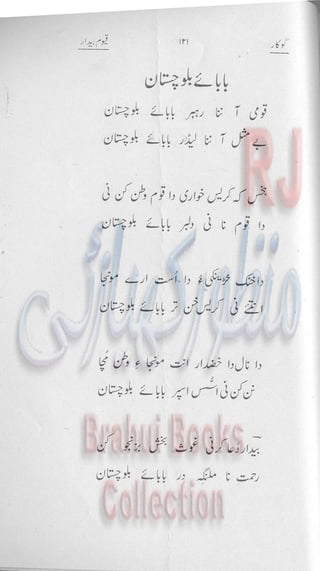 گوکار ۱۲۱ قیوم بیدار
بابائے بلوچستان
قومی آ ننا رہبر بابائے بلوچستان
بے مثل آ ننا لیڈر بابائے بلوچستان
کہ کریس خواری دا قوم وطن کن نی
دا قوم نا نی دلبر بابائے بلوچستان
دا دا اُست ارے مونجا
نی کریس خن تر بابائے بلوچستان
دا نال دا خضدار انت مونجا ءِ وطن مُچا
نن کن نی اُسس اسپر بابائے بلوچستان
بیدار دعا کر نی غوث بخش بزنجو کن
رحمت نا ملنگہ در بابائے بلوچستان
RJ
Brahui Books
Collection